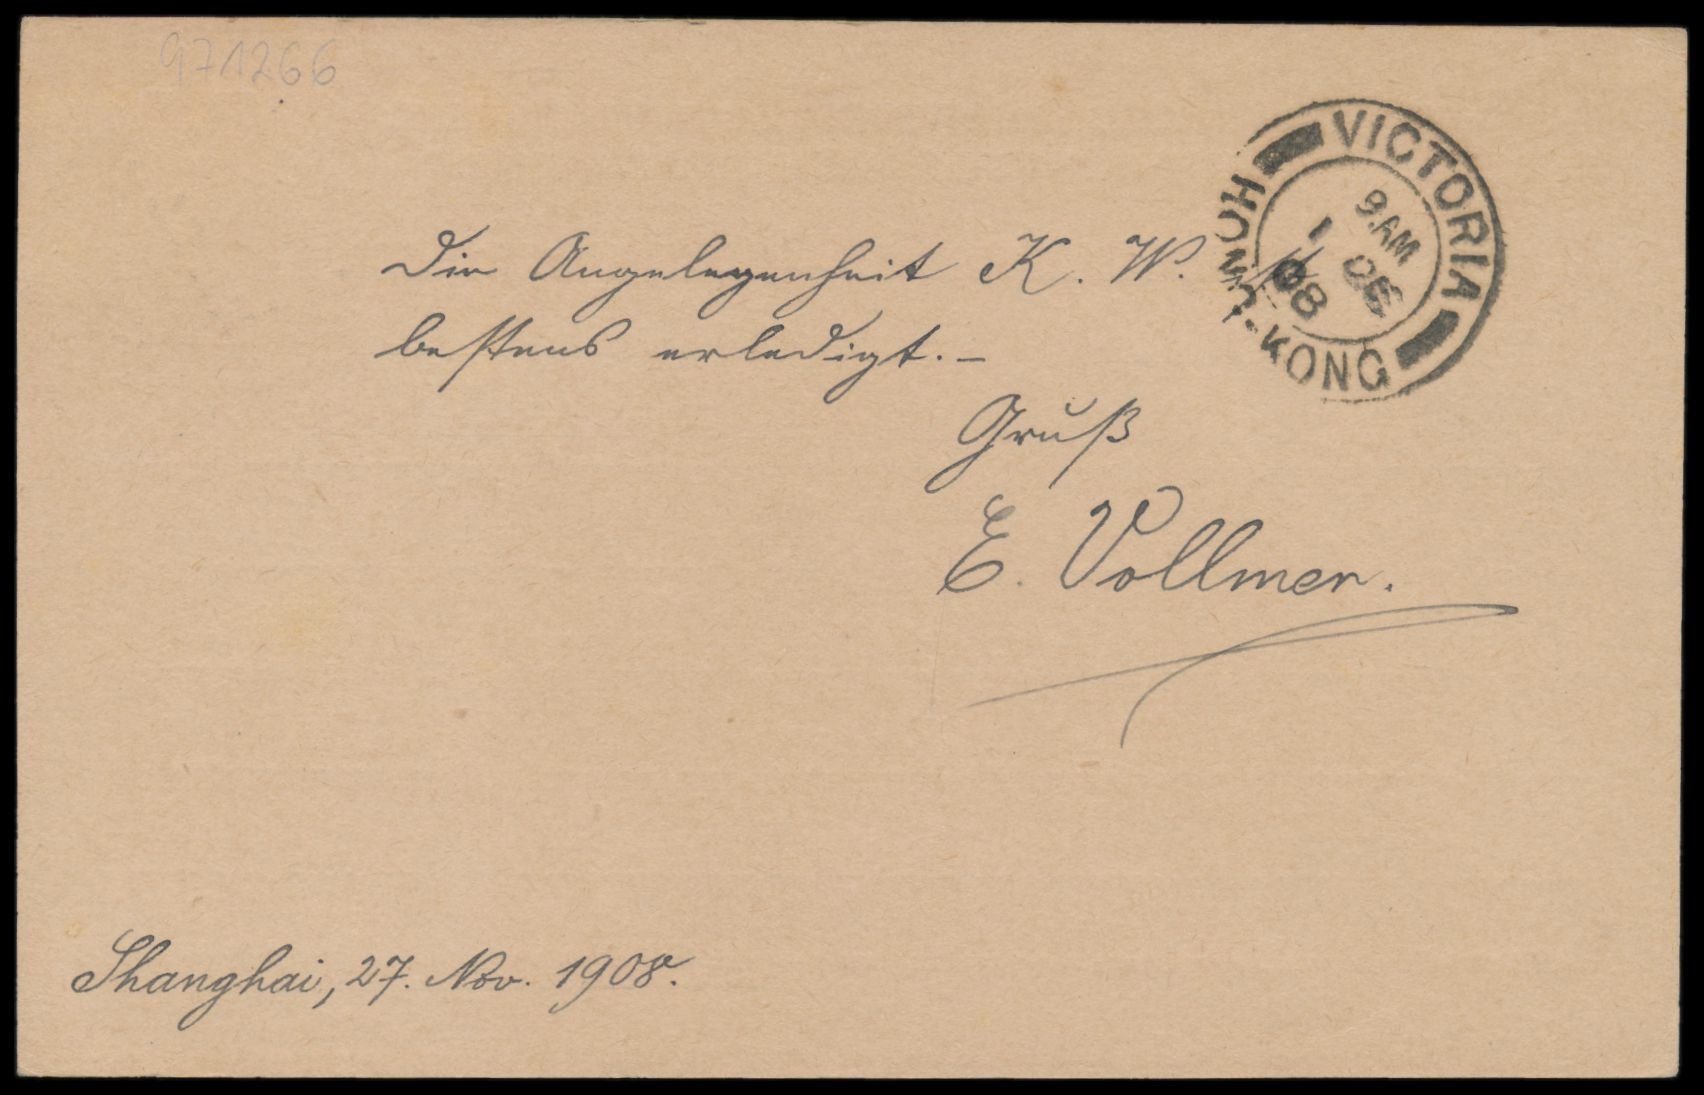 971266
VICTORIA
HONG-KONG
9 AM
1 DE
08
Die Angelegenheit K. W. ist
bestens erledigt. –
Gruß
E. Vollmer.
Shanghai, 27. Nov. 1908.